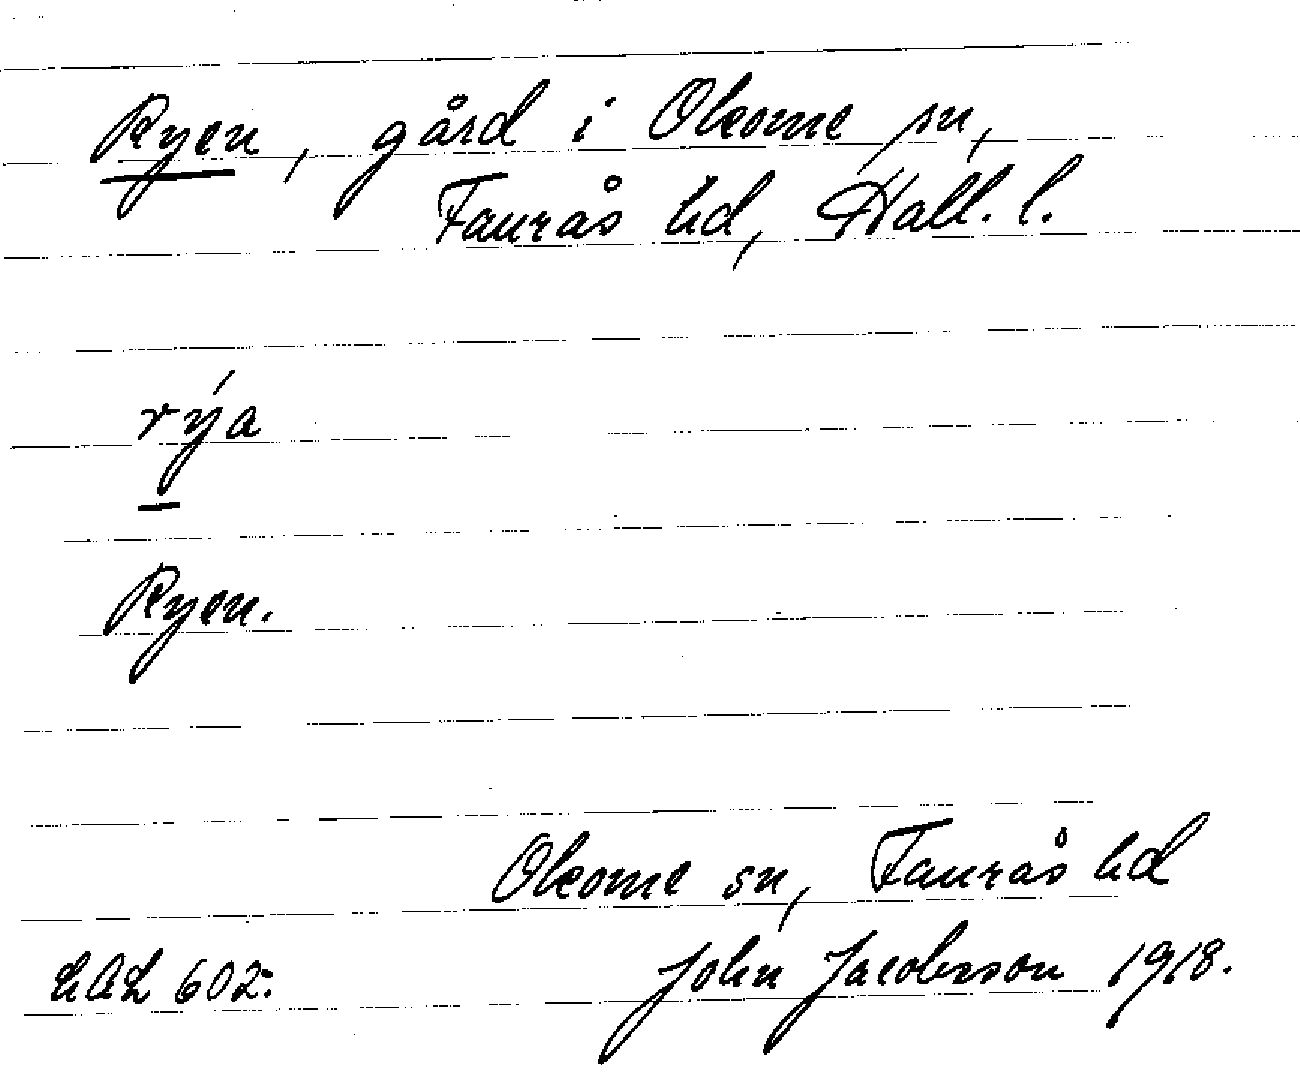 Ryen, gård i Okome sn,
Faurås hd, Hall. l.
rýa
Ryen.
Okome sn, Faurås hd
LAL 602. John Jacobsson 1918.